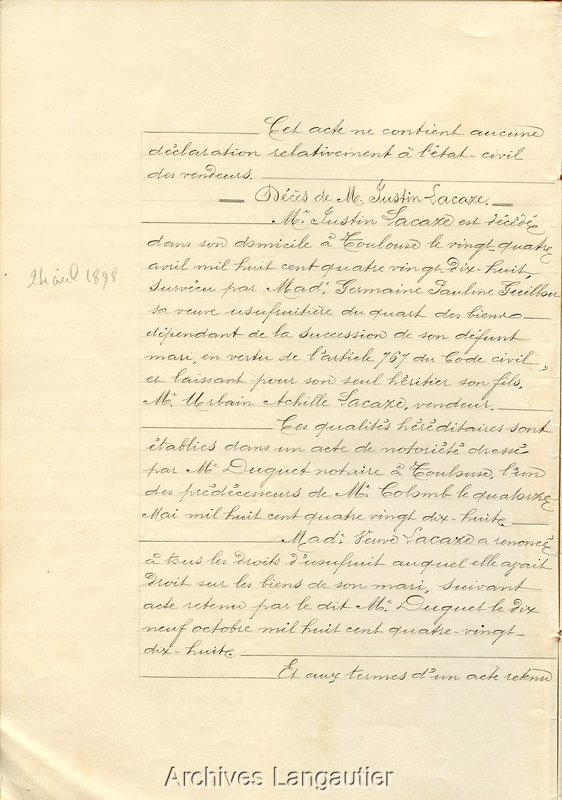 Cet acte ne contient aucune
déclaration relativement à l'état-civil
des vendeurs.
Décès de M. Justin Lacaze.
Mr. Justin Lacaze est décédé
dans son domicile à Toulouse le vingt-quatre
avril mil huit cent quatre vingt-dix-huit,
24 avril 1898
survécu par Made. Germaine Pauline Guilhou
sa veuve usufruitière du quart des biens
dépendant de la succession de son défunt
mari, en vertu de l'article 767 du Code civil,
et laissant pour son seul héritier son fils,
Mr. Urbain Achille Lacaze, vendeur.
Ces qualités héréditaires sont
établies dans un acte de notoriété dressé
par Me. Duguet notaire à Toulouse, l'un
des prédécesseurs de Me. Colomb le quatorze
Mai mil huit cent quatre vingt dix-huit.
Made. Veuve Lacaze a renoncé
à tous les droits d'usufruit auquel elle ayait
droit sur les biens de son mari, suivant
acte retenu par le dit Me. Duguet le dix
neuf octobre mil huit cent quatre-vingt
dix-huit.
Et aux termes d'un acte retenu
Archives Langautier